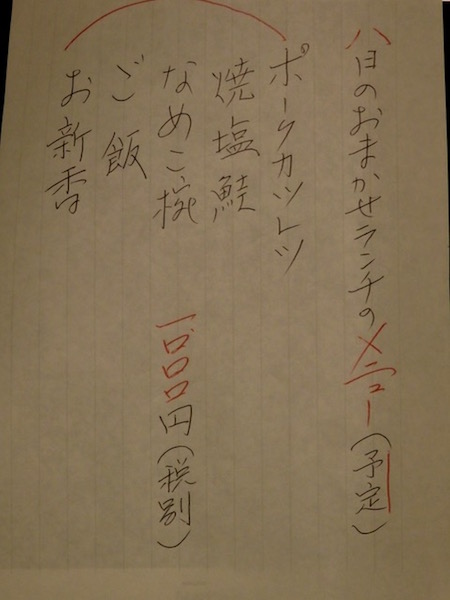 八日のおまかせランチのメニュー(予定)
ポークカツレツ
焼塩鮭
なめこ椀
ご飯
お新香
一、〇〇〇円(税別)